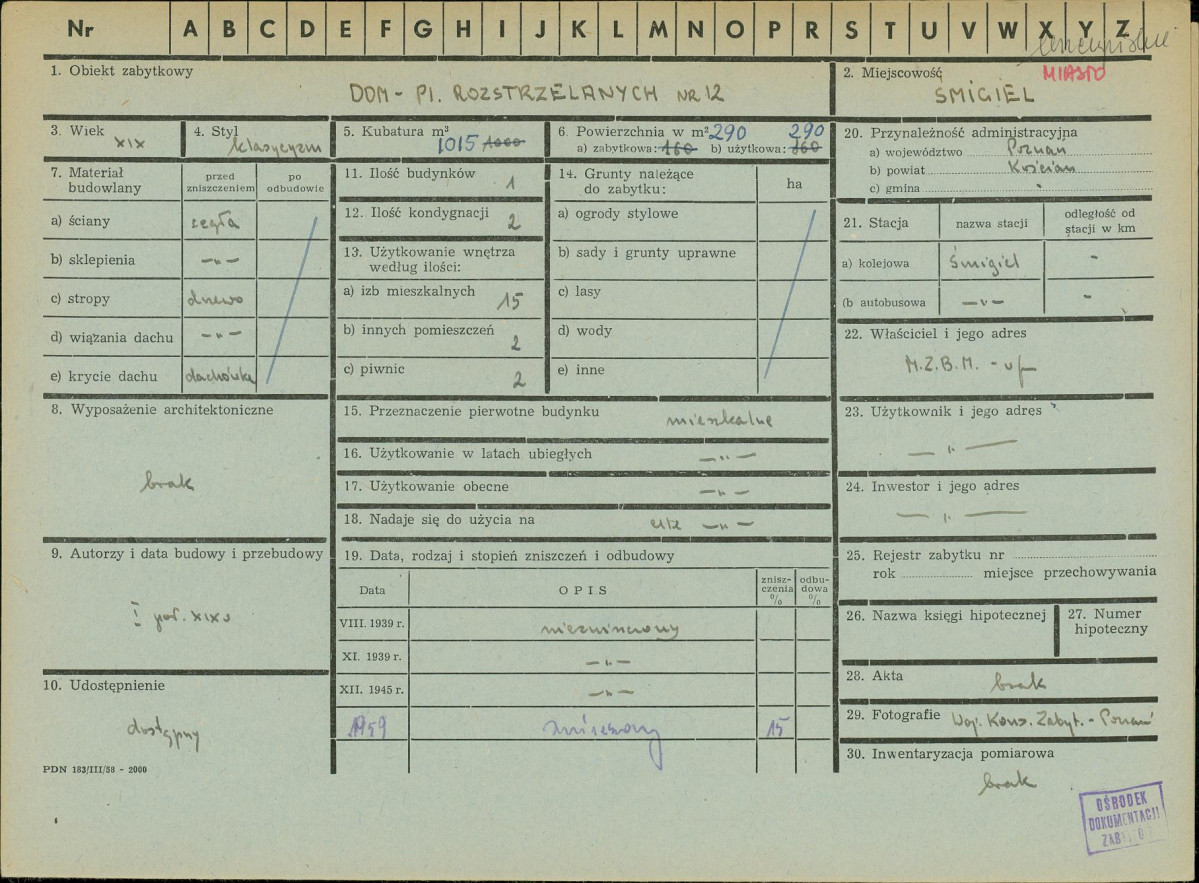 Nr A B C D E F G H I J K L M N O P R S T U V W X Y Z
1. Obiekt zabytkowy
DOM - Pl. ROZSTRZELANYCH NR 12
2. Miejscowość
MIASTO
ŚMIGIEL
3. Wiek
XIX
4. Styl
klasycyzm
5. Kubatura m³
1015 1000
6. Powierzchnia w m² 290 290
a) zabytkowa: 160 b) użytkowa: 160
7. Materiał budowlany
przed zniszczeniem
po odbudowie
a) ściany cegła
b) sklepienia —„—
c) stropy drewno
d) wiązania dachu —„—
e) krycie dachu dachówka
8. Wyposażenie architektoniczne
brak
9. Autorzy i data budowy i przebudowy
I poł. XIX w
10. Udostępnienie
dostępny
PDN 183/III/58 - 2000
11. Ilość budynków 1
12. Ilość kondygnacji 2
13. Użytkowanie wnętrza
według ilości:
a) izb mieszkalnych 15
b) innych pomieszczeń 2
c) piwnic 2
14. Grunty należące
do zabytku:
ha
a) ogrody stylowe
b) sady i grunty uprawne
c) lasy
d) wody
e) inne
15. Przeznaczenie pierwotne budynku mieszkalne
16. Użytkowanie w latach ubiegłych —„—
17. Użytkowanie obecne —„—
18. Nadaje się do użycia na cele —„—
19. Data, rodzaj i stopień zniszczeń i odbudowy
Data
OPIS
znisz-
czenia
%
odbu-
dowa
%
VIII. 1939 r. niezniszczony
XI. 1939 r. —„—
XII. 1945 r. —„—
1959 zniszczony 15
20. Przynależność administracyjna
a) województwo Poznań
b) powiat Kościan
c) gmina
21. Stacja
nazwa stacji
odległość od
stacji w km
a) kolejowa Śmigiel -
(b autobusowa —„— -
22. Właściciel i jego adres
M.Z.B.M.
23. Użytkownik i jego adres
— „ —
24. Inwestor i jego adres
— „ —
25. Rejestr zabytku nr
rok miejsce przechowywania
26. Nazwa księgi hipotecznej
27. Numer
hipoteczny
28. Akta
brak
29. Fotografie Woj. Kons. Zabyt. - Poznań
30. Inwentaryzacja pomiarowa
brak
OŚRODEK
DOKUMENTACJI